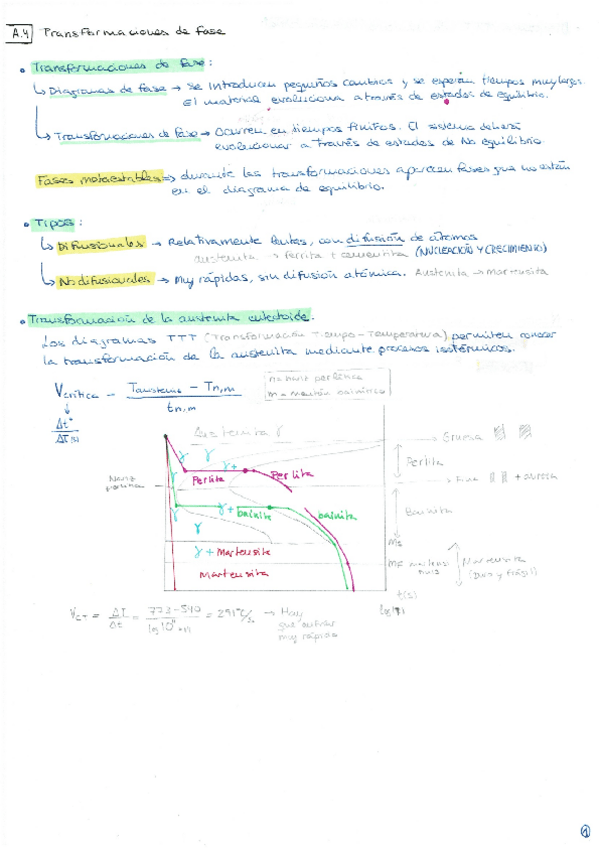 A.4 Transformaciones de fase
• Transformaciones de fase:
↳ Diagramas de fase → se introducen pequeños cambios y se esperan tiempos muy largos.
El material evoluciona a través de estados de equilibrio.
↳ Transformaciones de fase → Ocurren en tiempos finitos. El sistema deberá
evolucionar a través de estados de No equilibrio.
Fases metaestables ⇒ durante las transformaciones aparecen fases que no están
en el diagrama de equilibrio.
• Tipos:
↳ Difusionales → Relativamente lentas, con difusión de átomos
austenita → ferrita + cementita (NUCLEACIÓN Y CRECIMIENTO)
↳ No difusionales → Muy rápidas, sin difusión atómica. Austenita → martensita
• Transformación de la austenita eutectoide.
Los diagramas TTT (Transformación - Tiempo - Temperatura) permiten conocer
la transformación de la austenita mediante procesos isotérmicos.
Vcrítica = Taustenita - Tn,m / tn,m
n = nariz perlítica
m = mentón bainítico
Δt°
ΔT(s)
Austenita γ
Gruesa
γ γ γ+
Perlita Perlita
Perlita
Nariz perlítica
Fina
γ γ+ bainita bainita
Bainita
γ
Ms
γ + Martensita
MF
Martensita
(Dura y frágil)
Martensita
t(s)
VCT = ΔT/Δt = 773-540 / = 291°C/s → Hay
que enfriar
muy rápido
1